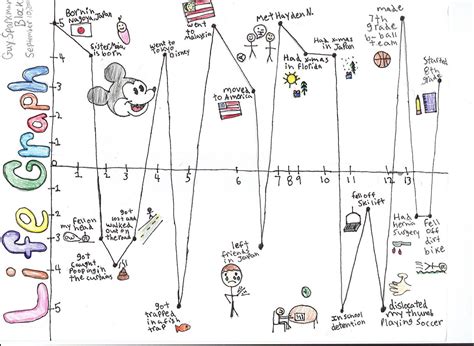 Guy Sparkman
Black
September
Life Graph
5
4
3
2
1
1
3
4
5
1 2 3 4 5 6 7 8 9 10 11 12 13
Born in
Nagoya, Japan
Sister
is born
went to
Tokyo
Disney
went
to
Malaysia
moved
to America
Met Hayden N.
Had x-mas
in Florida
Had x-mas
in Japan
made
7th grade
b ball
team
Started
8th
grade
fell on
my head
got
caught
Pooping in
the curtains
got
lost and
walked
out on
the road
got
trapped
in a fish
trap
left
friends
in Japan
HI
In school
detention
fell off
Ski lift
dislocated
my thumb
Playing Soccer
Had
hernia
surgery
Fell
off
dirt
bike